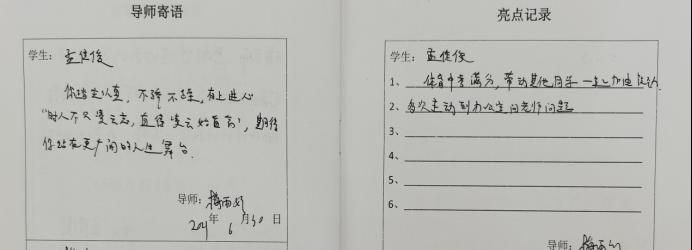 导师寄语
学生：孟佳俊
你踏实认真，不骄不躁，有上进心
“时人不识凌云志，直待凌云始道高”，期待
你站在更广阔的人生舞台。
导师：
2021年6月30日
亮点记录
学生：孟佳俊
1、体育中考满分，带动其他同学一起加油运动
2、多次主动到办公室问老师问题
3、
4、
5、
6、
导师：